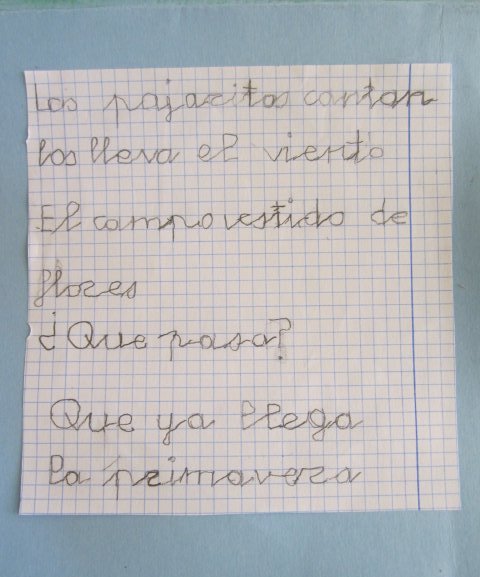 Los pajaritos cantan
los lleva el viento
El campo vestido de
flores
¿Que pasa?
Que ya llega
la primavera